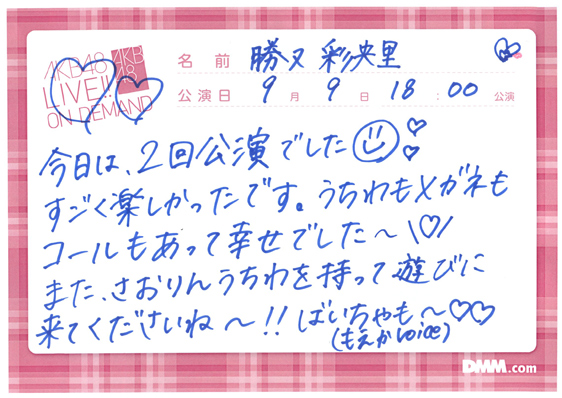 AKB48
LIVE!!
ON DEMAND
AKB
48
名前 勝又 彩央里
公演日 9月 9日 18:00 公演
今日は、2回公演でした
すごく楽しかったです。うちわもメガネも
コールもあって幸せでした〜\♡/
また、さおりんうちわを持って遊びに
来てくださいね〜!! ばいちゃも〜♡♡
(もえかvoice)
DMM.com